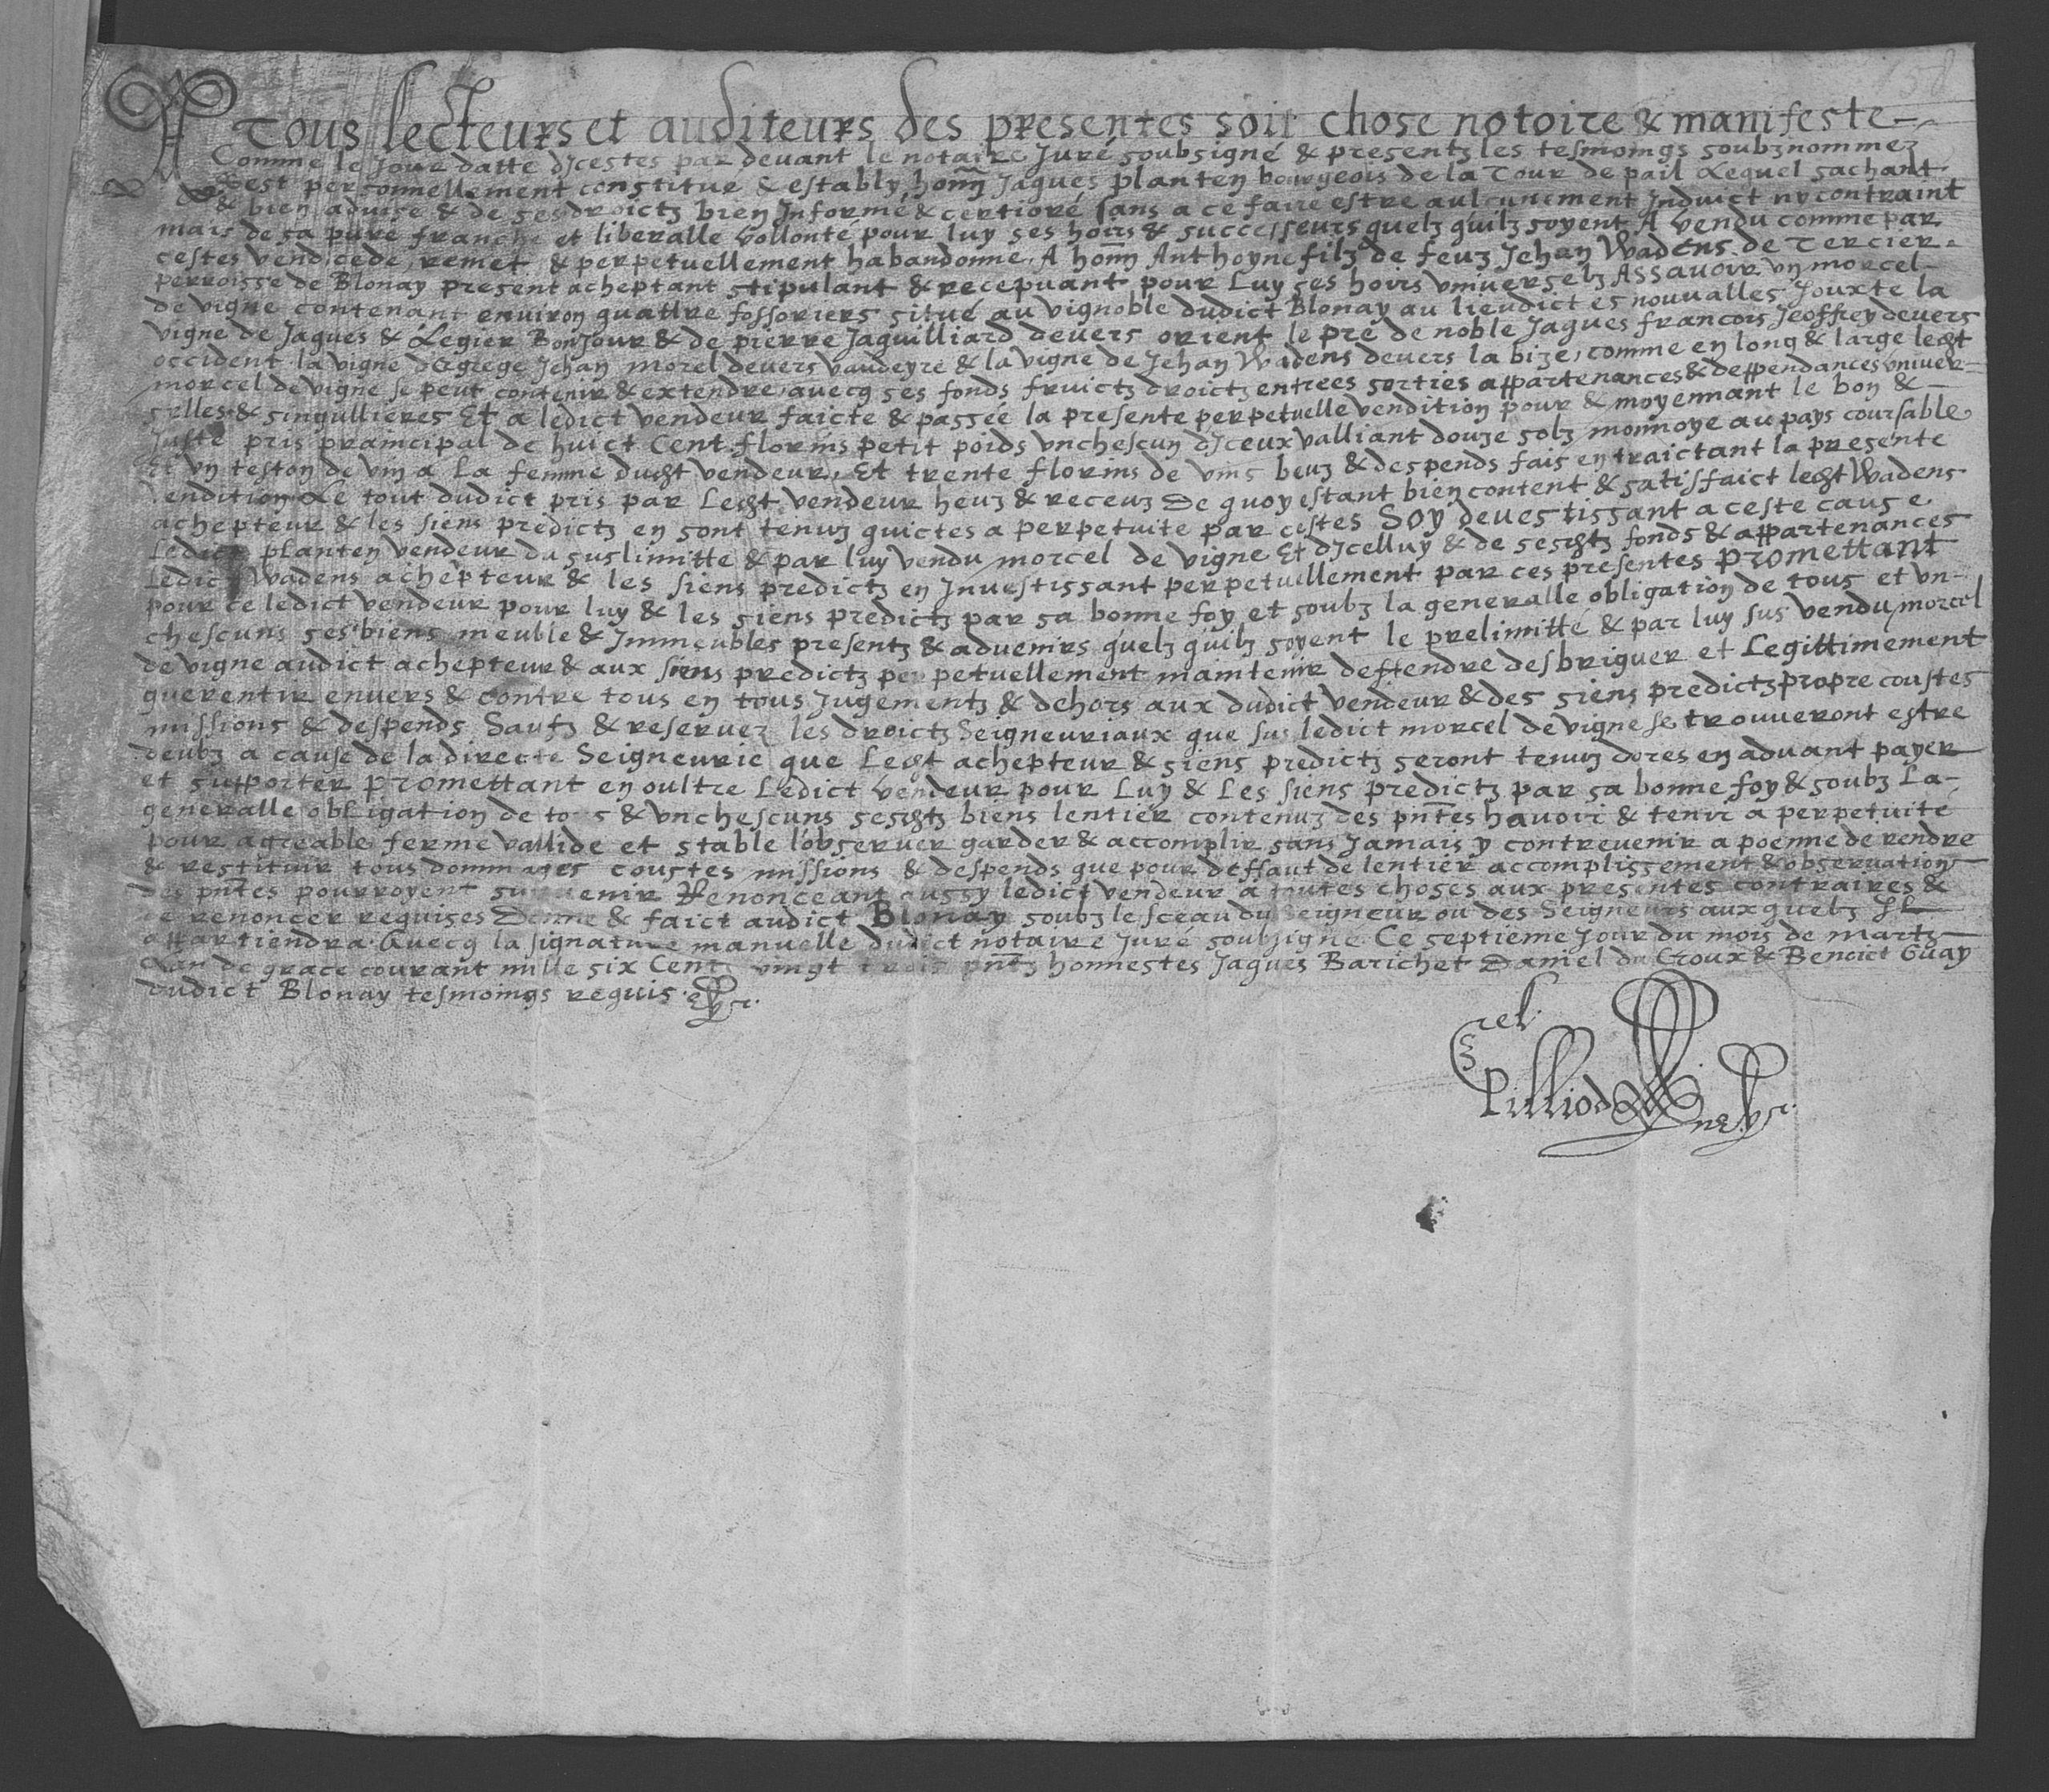 158
A Tous lecteurs et auditeurs des presentes soit chose notoire & manifeste
Comme le Jour datte d'Jcestes par devant le notaire Juré soubsigné & presentz les tesmoings soubznommez
Sest personnellement constitué & estably honn Jaques planten bourgeois de la Tour de pail Lequel sachant
& bien advisé & de ses droictz bien Jnformé & certioré sans a ce faire estre aulcunement Jnduict ny contraint
mais de sa pure franche et liberalle vollonte pour luy ses hoirs & successeurs quelz quilz soyent A vendu comme par
cestes vend cede, remet & perpetuellement habandonne. A honn Anthoyne filz de feuz Jehan Wadens de Tercier
perroisse de Blonay present acheptant stipulant & recepvant pour Luy ses hoirs universelz Assavoir un morcel
de vigne contenant environ quattre fossoriers situé au vignoble dudict Blonay au lieudict es nouvalles, Jouxte la
vigne de Jaques & Legier BonJour & de pierre Jaquilliard devers orient le pré de noble Jaques francois Jeoffrey devers
occident la vigne dEgrege Jehan morel devers vaudeyre & la vigne de Jehan Wadens devers la bize, comme en long & large ledt
morcel de vigne se peut contenir & extendre avecq ses fonds fruictz droictz entrees sorties appartenances & deppendances univer=
selles & singullieres Et a ledict vendeur faicte & passée la presente perpetuelle vendition pour & moyennant le bon &
Juste pris praincipal de huict Cent florins petit poids unchescun dJceux valliant douze solz monnoye au pays coursable
Et un teston de vin a La femme dudt vendeur, Et trente florins de vins beuz & despends fais en traictant la presente
vendition Le tout dudict pris par Ledt vendeur heuz & receuz De quoy estant bien content & satisfaict ledt Wadens
achepteur & les siens predictz en sont tenuz quictes a perpetuite par cestes Soy devestissant a ceste cause
Ledict planten vendeur du suslimitte & par luy vendu morcel de vigne Et dJcelluy & de sesdtz fonds & appartenances
Ledict Wadens achepteur & les siens predictz en Jnvestissant perpetuellement par ces presentes Promettant
pour ce ledict vendeur pour luy & les siens predictz par sa bonne foy et soubz la generalle obligation de tous et un-
chescuns ses biens meuble & Jmmeubles presentz & advenirs quelz quilz soyent le prelimitté & par luy sus vendu morcel
de vigne audict achepteur & aux siens predictz perpetuellement maintenir deffendre desbriguer et Legittimement
guerentir envers & contre tous en tous Jugementz & dehors aux dudict vendeur & des siens predictz propre coustes
missions & despends Saufz & reservez les droictz Seigneuriaux que sus ledict morcel de vigne se trouveront estre
deubz a cause de la directe Seigneurie que Ledt achepteur & siens predictz seront tenuz dores en advant payer
et supporter Promettant en oultre Ledict vendeur pour Luy & Les siens predictz par sa bonne foy & soubz La-
generalle obLigation de tous & unchescuns sesdtz biens lentier contenuz des pntes havoir & tenir a perpetuité
pour agreable ferme vallide et stable l'observer garder & accomplir sans Jamais y contrevenir a poenne de rendre
& restituir tous dommages coustes missions & despends que pour deffaut de lentier accomplissement & observation
des pntes pourroyent survenir Renonceant aussy ledict vendeur a toutes choses aux presentes contraires &
de renoncer requises Donné & faict audict Blonay soubz le sceau du Seigneur ou des Seigneurs auxquelz Jl
appartiendra Avecq la signature manuelle dudict notaire Juré soubsigné Ce septieme Jour du mois de martz
Lan de grace courant mille six Cent vingt trois pntz honnestes Jaques Barichet Daniel du Croux & Benoict Guay
dudict Blonay tesmoings requis
Pilliod